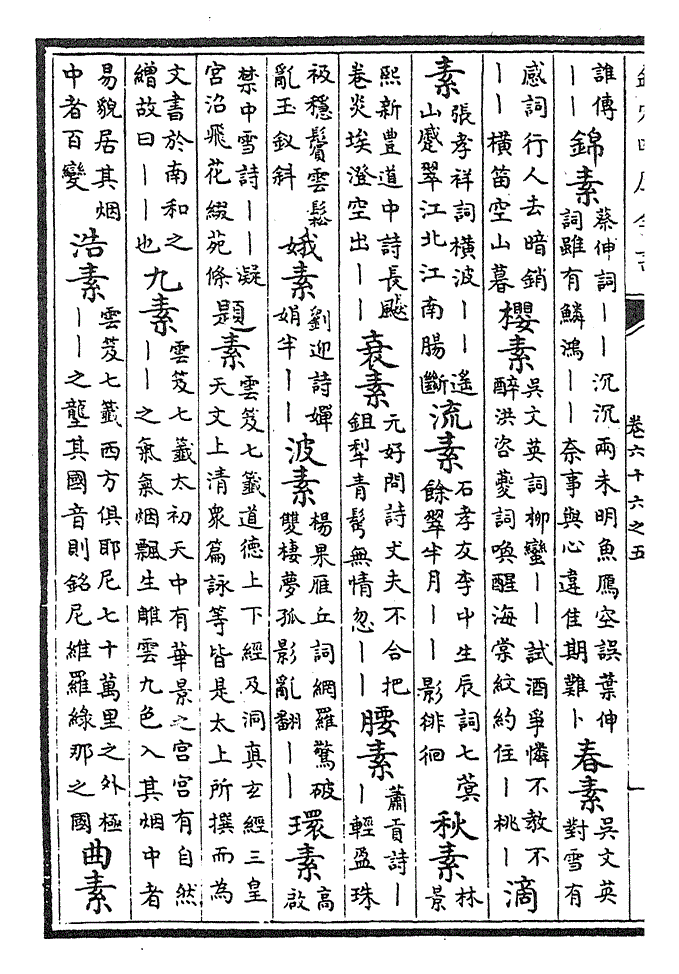 卷六十六之五
誰傳——錦素蔡伸詞——沉沉兩未明魚鴈空誤葉伸詞雖有鱗鴻——奈事與心違佳期難卜春素吳文英對雪有
感詞行人去暗銷——橫笛空山暮櫻素吳文英詞柳蠻——試酒爭憐不教不醉洪咨夔詞喚醒海棠紋約住—桃—滴
素張孝祥詞橫波——遙山蹙翠江北江南腸斷流素石孝友李中生辰詞七蓂餘翠半月——影徘徊秋素林景
熙新豐道中詩長飈卷炎埃澄空出——衰素元好問詩丈夫不合把鉏犁青髩無情忽——腰素蕭貢詩——輕盈珠
衱穩鬢雲鬆亂玉釵斜娥素劉迎詩嬋娟半——波素楊果雁丘詞網羅驚破雙棲夢孤影亂翻——環素高啟
禁中雪詩——凝宮沿飛花綴苑條題素雲笈七籤道德上下經及洞真玄經三皇天文上清衆篇詠等皆是太上所撰而為
文書於南和之繒故曰——也九素雲笈七籤太初天中有華景之宮宮有自然——之氣氣烟飄生雕雲九色入其烟中者
易貌居其烟中者百變浩素雲笈七籤西方俱耶尼七十萬里之外極——之壟其國音則銘尼維羅綠那之國曲素